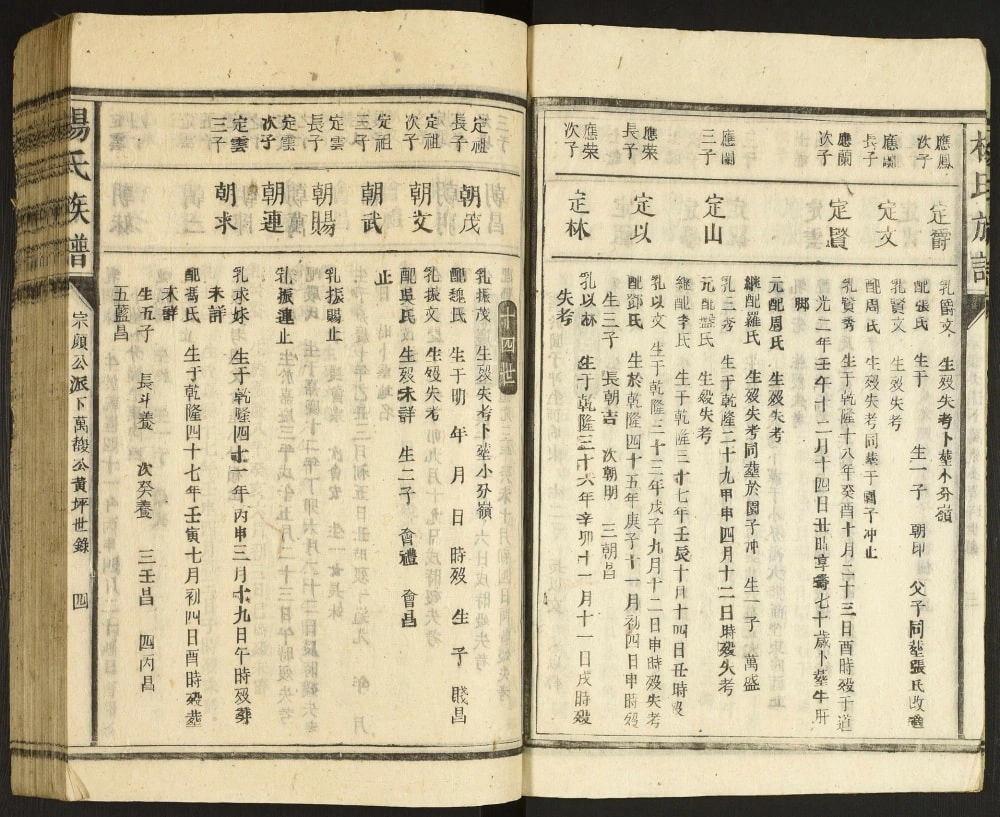 應鳳
次子
定爵
乳爵文 生殁失考卜塟小分嶺
配張氏 生于 生一子 朝印 父子同塟張氏改適
應蘭
長子
定文
乳賢文 生殁失考
配周氏 生殁失考同塟于園子冲止
應蘭
次子
定賢
乳賢秀 生于乾隆十八年癸酉十月二十三日酉時殁于道
光二年壬午十二月十四日丑時享壽七十歲卜塟牛肝
元配周氏 生殁失考
繼配羅氏 生殁失考同塟於園子冲 生一子 萬盛
應蘭
三子
定山
乳三秀 生于乾隆二十九年甲申四月十二日時殁失考
元配盤氏 生殁失考
繼配李氏 生于乾隆三十七年壬辰十月十四日丑時殁
應柴
長子
定以
乳以文 生于乾隆三十三年戊子九月十二日申時殁失考
配鄧氏 生於乾隆四十五年庚子十一月初四日申時殁
生三子 長朝吉 次朝明 三朝昌
應柴
次子
定林
乳以林 生于乾隆三十六年辛卯十一月十一日戌時殁
失考
十四世
定祖
長子
朝茂
乳振茂 生殁失考卜塟小分嶺
配魏氏 生于明 年 月 日 時殁 生 子 賤昌
定祖
次子
朝文
乳振文 生殁失考
配吳氏 生殁未詳 生二子 會禮 會昌
定祖
三子
朝武
止
定雲
長子
朝賜
乳振賜止
定雲
次子
朝連
乳振連止
定雲
三子
朝求
乳求妹 生于乾隆四十一年丙申三月十九日午時殁葬
未詳
配馮氏 生于乾隆四十七年壬寅七月初四日酉時殁塟
未詳
生五子 長斗養 次癸養 三壬昌 四丙昌
五藍昌
楊氏族譜
宗顔公派下萬馥公黄坪世錄
四